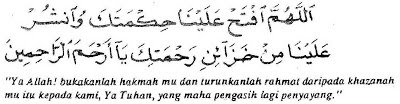 اَللّٰهُمَّ افْتَحْ عَلَيْنَا حِكْمَتَكَ وَانْشُرْ
عَلَيْنَا مِنْ خَزَآئِنِ رَحْمَتِكَ يَآ اَرْحَمَ الرَّاحِمِيْنَ
"Ya Allah! bukakanlah hakmah mu dan turunkanlah rahmat daripada khazanah
mu itu kepada kami, Ya Tuhan, yang maha pengasih lagi penyayang."